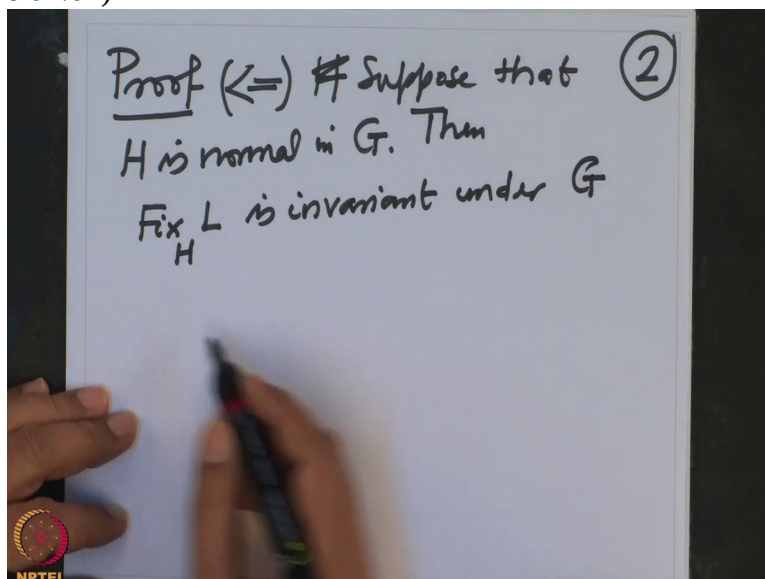 Proof (<=) Suppose that
②
H is normal in G. Then
Fix_H L is invariant under G
NPTEL